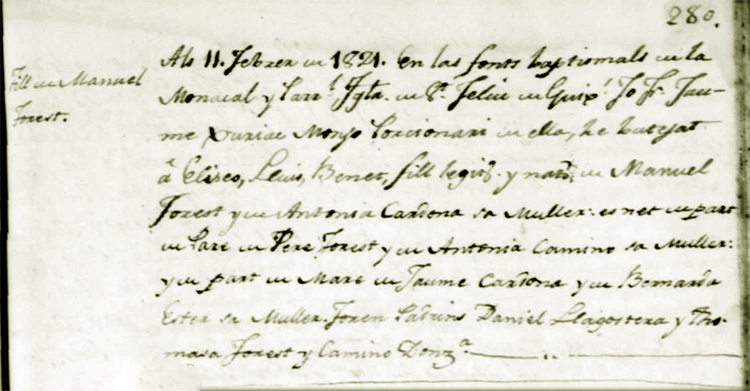 280.
Fill de Manuel
Forest.
Als 11. Febrer de 1821. En las fonts baptismals de la
Monacal y Parr.l Igla. de St. Feliu de Guix.s Jo Fr. Jau-
me Monjo Porcionari de ella, he batejat
á Eliseo, Lluis, Benet, fill legit. y natl. de Manuel
Forest y de Antonia Cardona sa Muller: es net de part
de Pare de Pere Forest y de Antonia Camino sa Muller:
y de part de Mare de Jaume Cardona y de Bernarda
Ester sa Muller. Foren Padrins Daniel Llagostera y Tho-
masa Forest y Camino Donz.a